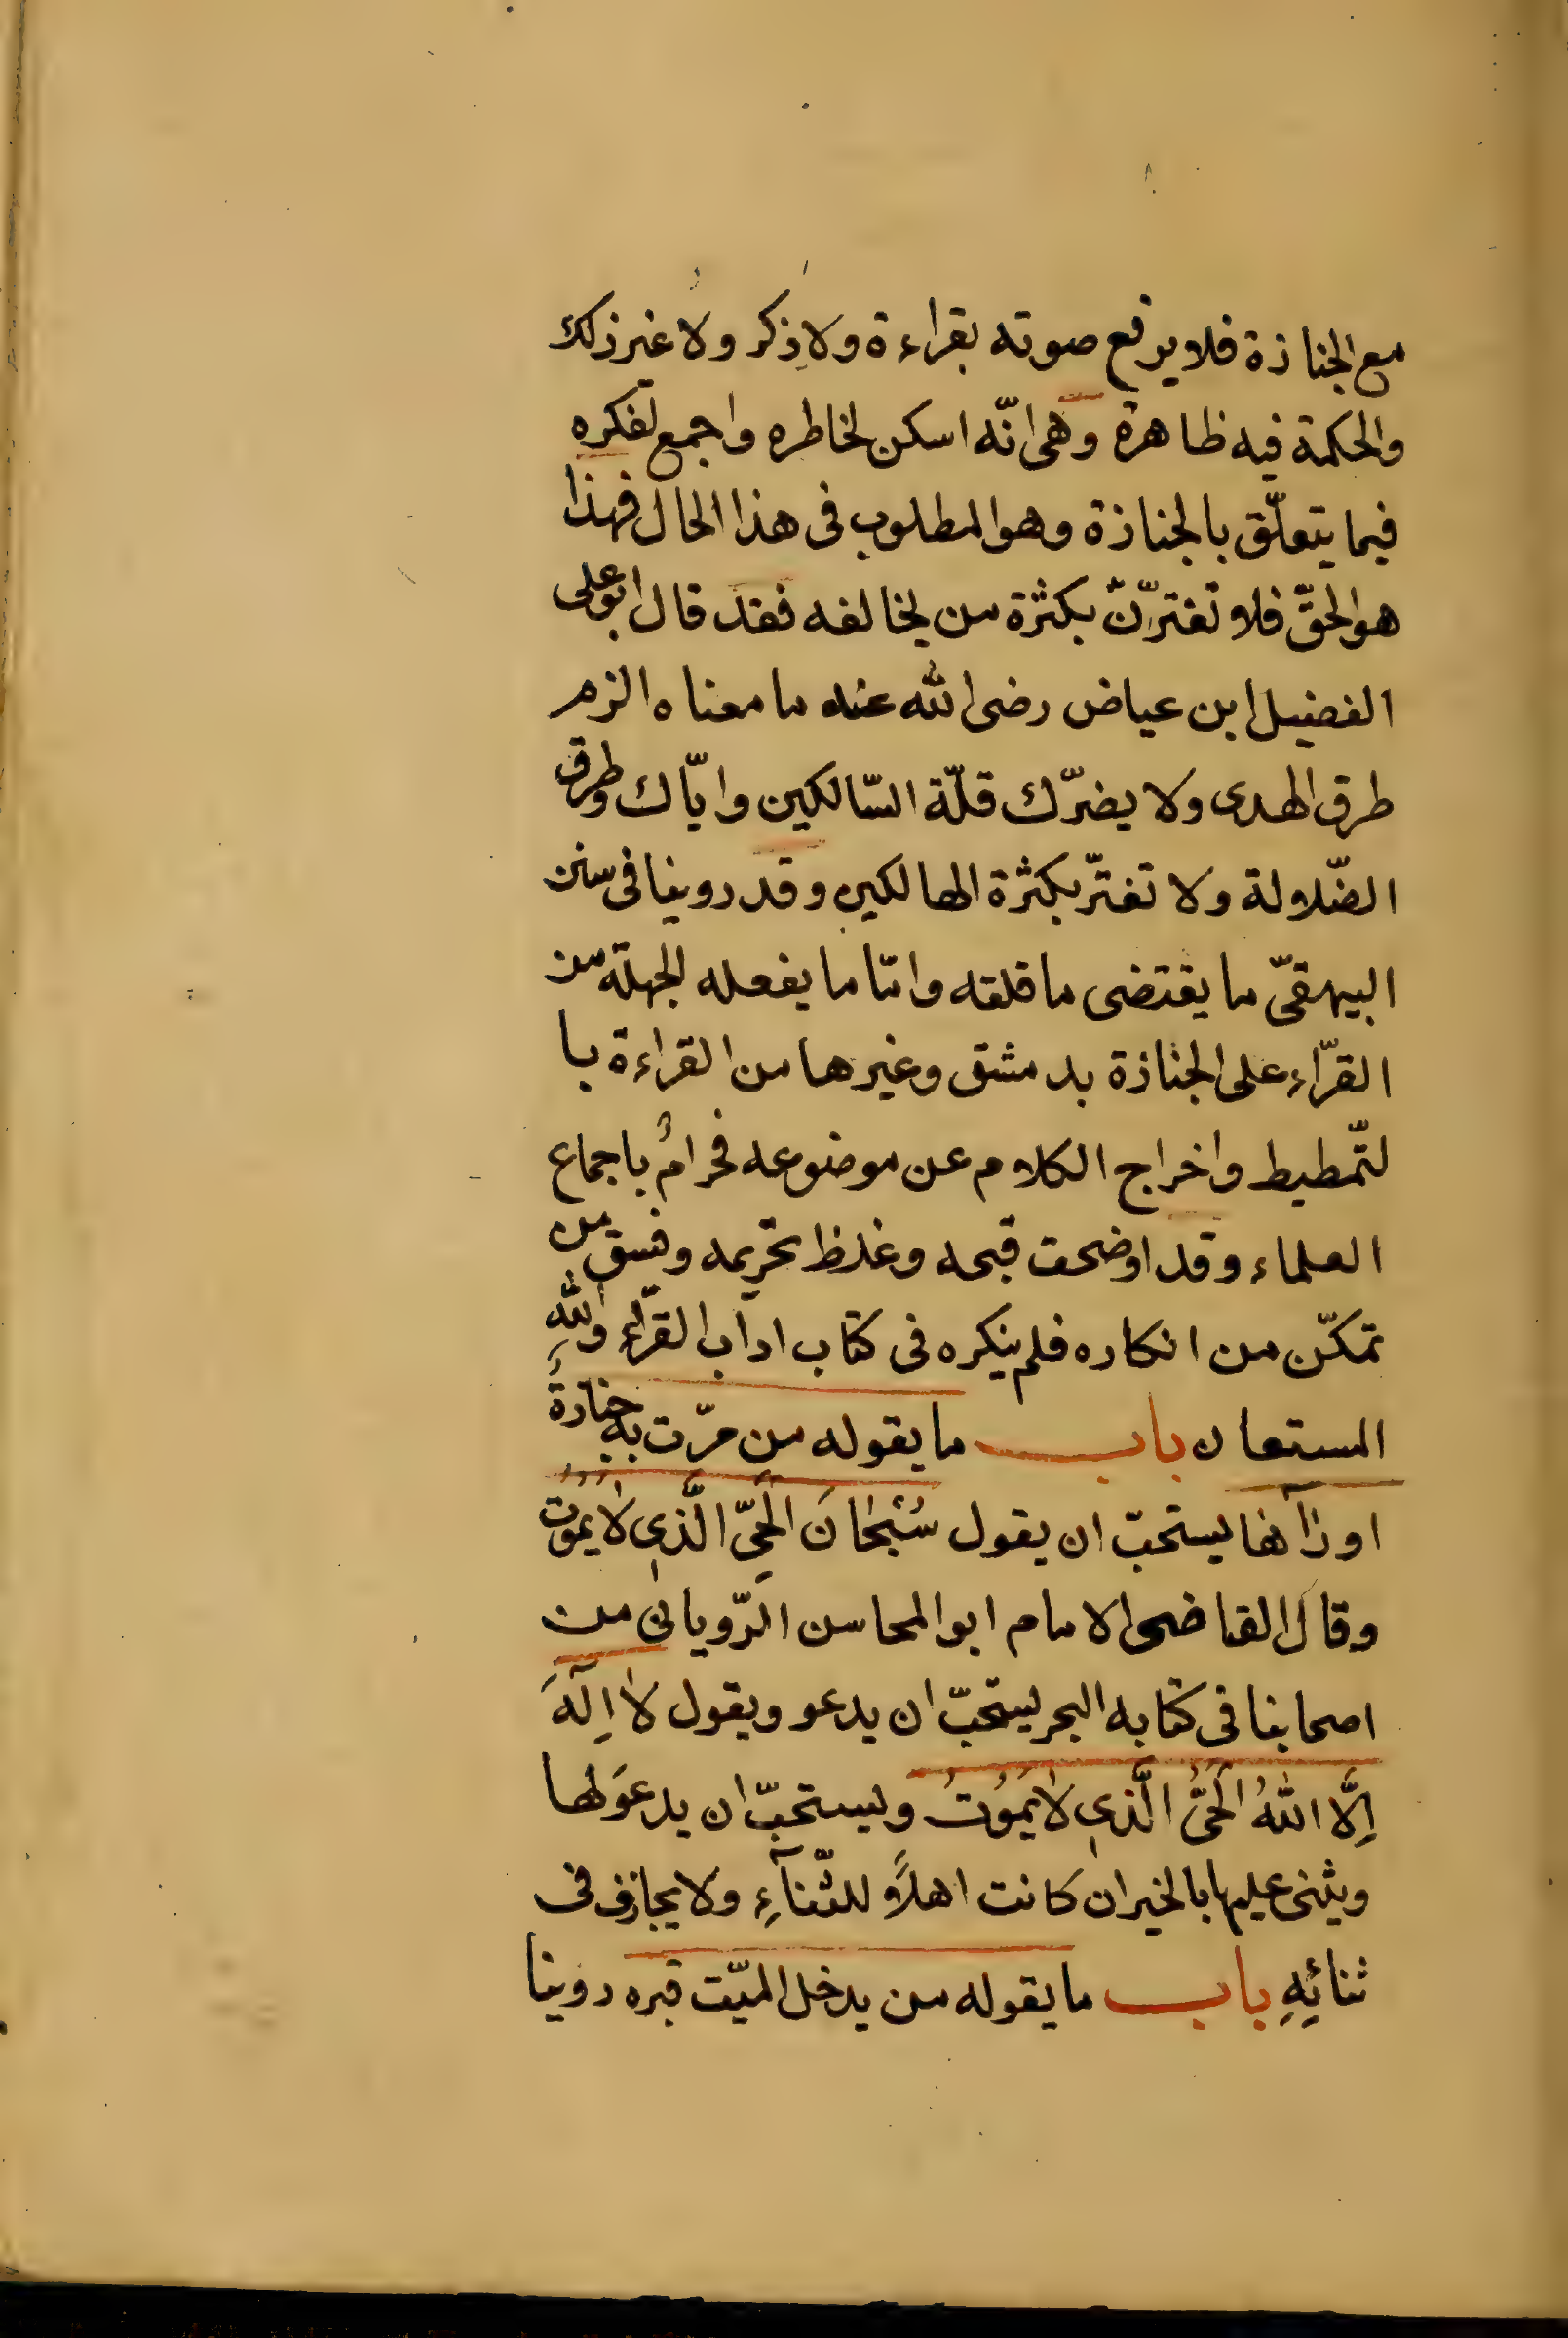 مع الجنازة فلا يرفع صوته بقراءة ولا ذِكر ولا غير ذلك
والحكمة فيه ظاهرة وهى انّه اسكن لخاطره واجمع لفكره
فيما يتعلّق بالجنازة وهو المطلوب فى هذا الحال فهذا
هو الحقّ فلا تغترّنّ بكثرة من يخالفه فقد قال ابو على
الفضيل ابن عياض رضى الله عنه ما معناه الزم
طرق الهدى ولا يضرّك قلّة السّالكين وايّاك وطرق
الضّلالة ولا تغترّ بكثرة الهالكين وقد روينا فى سنن
البيهقىّ ما يقتضى ما قلقه وامّا ما يفعله الجهلة من
القرّاء على الجنازة بدمشق وغيرها من القراءة با
لتّمطيط واخراج الكلام عن موضوعه فحرامٌ باجماع
العلماء وقد اوضحت قبحه وغلظ تحريمه وفسق من
تمكّن من انكاره فلم ينكره فى كتاب اداب القرّاء واللهِ
المستعان باب ما يقوله من مرّت به جنازةٌ
اوراٰها يستحبّ ان يقول سُبْحَانَ الْحَىِّ الَّذِى لَا يَمُوتُ
وقال القاضى الامام ابو المحاسن الرّويانى من
اصحابنا فى كتابه البحر يستحبّ ان يدعو ويقول لا اِلٰهَ
اِلَّا اللهُ الْحَىُّ الَّذِى لَا يَمُوتُ ويستحبّ ان يدعوَ لها
ويثنى عليها بالخير ان كانت اهلاً للثّنآءِ ولا يجازف فى
ثنائِهِ باب ما يقوله من يدخل الميّت قبره روينا